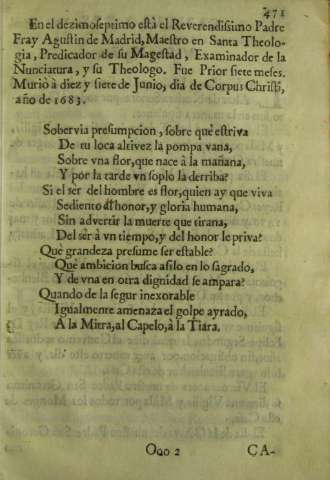 471
En el dezimoseptimo està el Reverendissimo Padre
Fray Agustin de Madrid, Maestro en Santa Theolo-
gia, Predicador de su Magestad, Examinador de la
Nunciatura, y su Theologo. Fue Prior siete meses.
Muriò à diez y siete de Junio, dia de Corpus Christi,
año de 1683.
Sobervia presumpcion, sobre què estriva
De tu loca altivez la pompa vana,
Sobre vna flor, que nace à la mañana,
Y por la tarde vn soplo la derriba?
Si el ser del hombre es flor, quien ay que viva
Sediento de honor, y gloria humana,
Sin advertir la muerte que tirana,
Del ser à vn tiempo, y del honor le priva?
Què grandeza presume ser estable?
Què ambicion busca asilo en lo sagrado,
Y de vna en otra dignidad se ampara?
Quando de la segur inexorable
Igualmente amenaza el golpe ayrado,
A la Mitra, al Capelo, à la Tiara.
Ooo 2 CA-